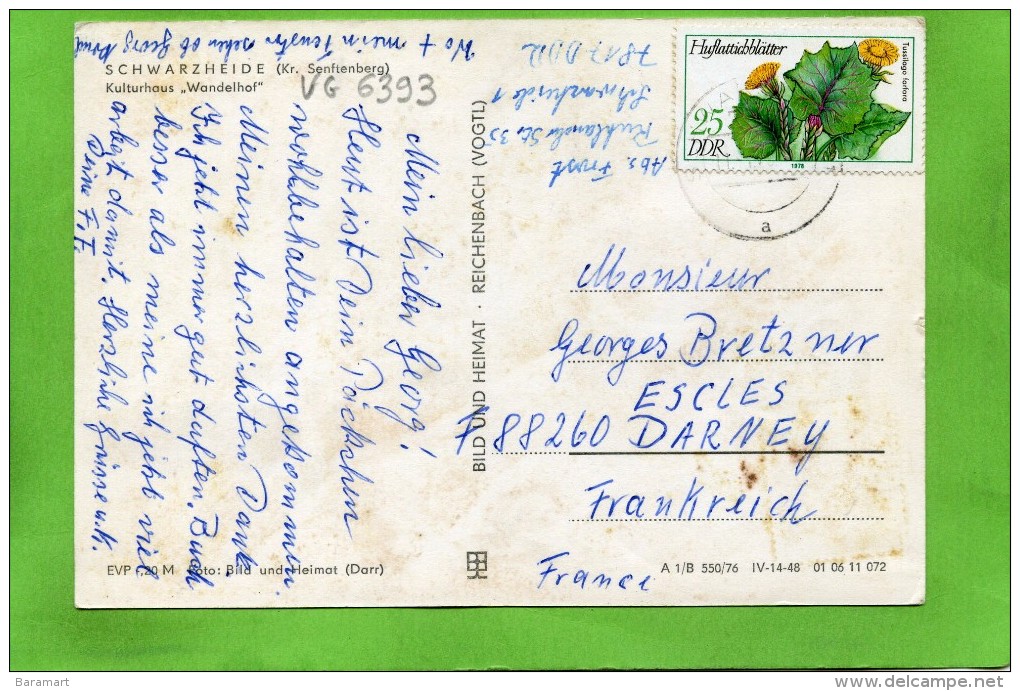 SCHWARZHEIDE (Kr. Senftenberg)
Kulturhaus „Wandelhof"
VG 6393
Wo + mein Fenster sehen ob Georg
Mein lieber Georg!
Heut ist Dein Päckchen
wohlbehalten angekommen.
Meinen herzlichsten Dank.
Ich jetzt immer gut duften. Buch
besser als meine ich jetzt viel
arbeit damit. Herzliche Grüsse u. K.
Deine F.F.
Abs. Frost
Ruhlander St. 35
Schwarzheide 1
7817 DDR
BILD UND HEIMAT · REICHENBACH (VOGTL)
Huflattichblätter
Tussilago farfara
25
DDR
1978
a
Monsieur
Georges Bretzner
ESCLES
F 88260 DARNEY
Frankreich
France
EVP 0,20 M Foto: Bild und Heimat (Darr)
A 1/B 550/76 IV-14-48 01 06 11 072
Baramart
delcampe.net